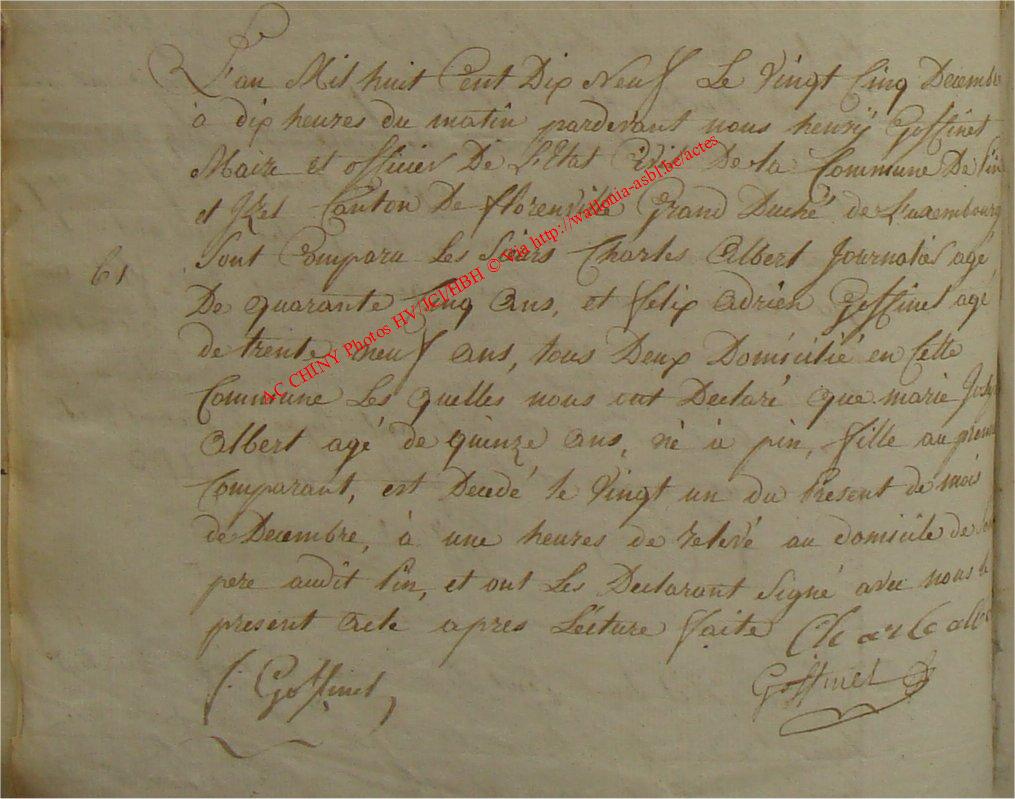 L'an Mil huit Cent Dix Neuf Le Vingt Cinq Decembre
à dix heures du matin pardevant nous henrÿ Goffinet
Maire et officier De L'Etat Civil De la Commune De Pin
et Izel Canton De florenville Grand Duché de Luxembourg
Sont Comparu Les Sieurs Charles Albert Journalié agé
61
De quarante Cinq Ans, et felix Adrien Goffinet agé
de trente neuf ans, tous Deux Domicilié en Cette
Commune Les quelles nous ont Declaré que marie
Albert agé de quinze ans, né à pin, fille au
Comparant, est Decedé le Vingt un du Present de mois
de Decembre, à une heures de relevé au domicile de
pere audit Pin, et ont Les Declarant Signé avec nous le
present Acte apres Lecture faite Charle
f. Goffinet
Goffinet
AC CHINY Photos HV/JCJ/HBH © via http://wallonia-asbl.be/actes